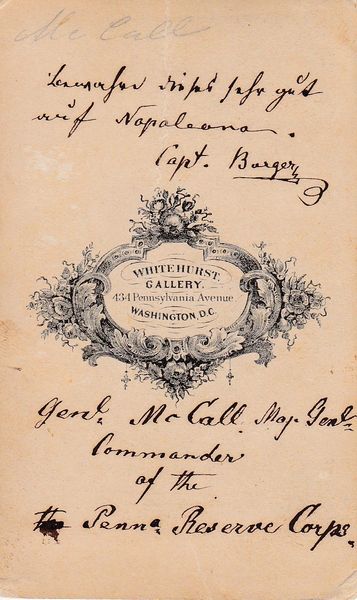 Mc Call
bewahre dieses sehr gut
auf Napoleona.
Capt. Burger
WHITEHURST
GALLERY.
434 Pennsylvania Avenue
WASHINGTON, D.C.
Genl. McCall Maj. Genl.
Commander
of the
the Penna. Reserve Corps.